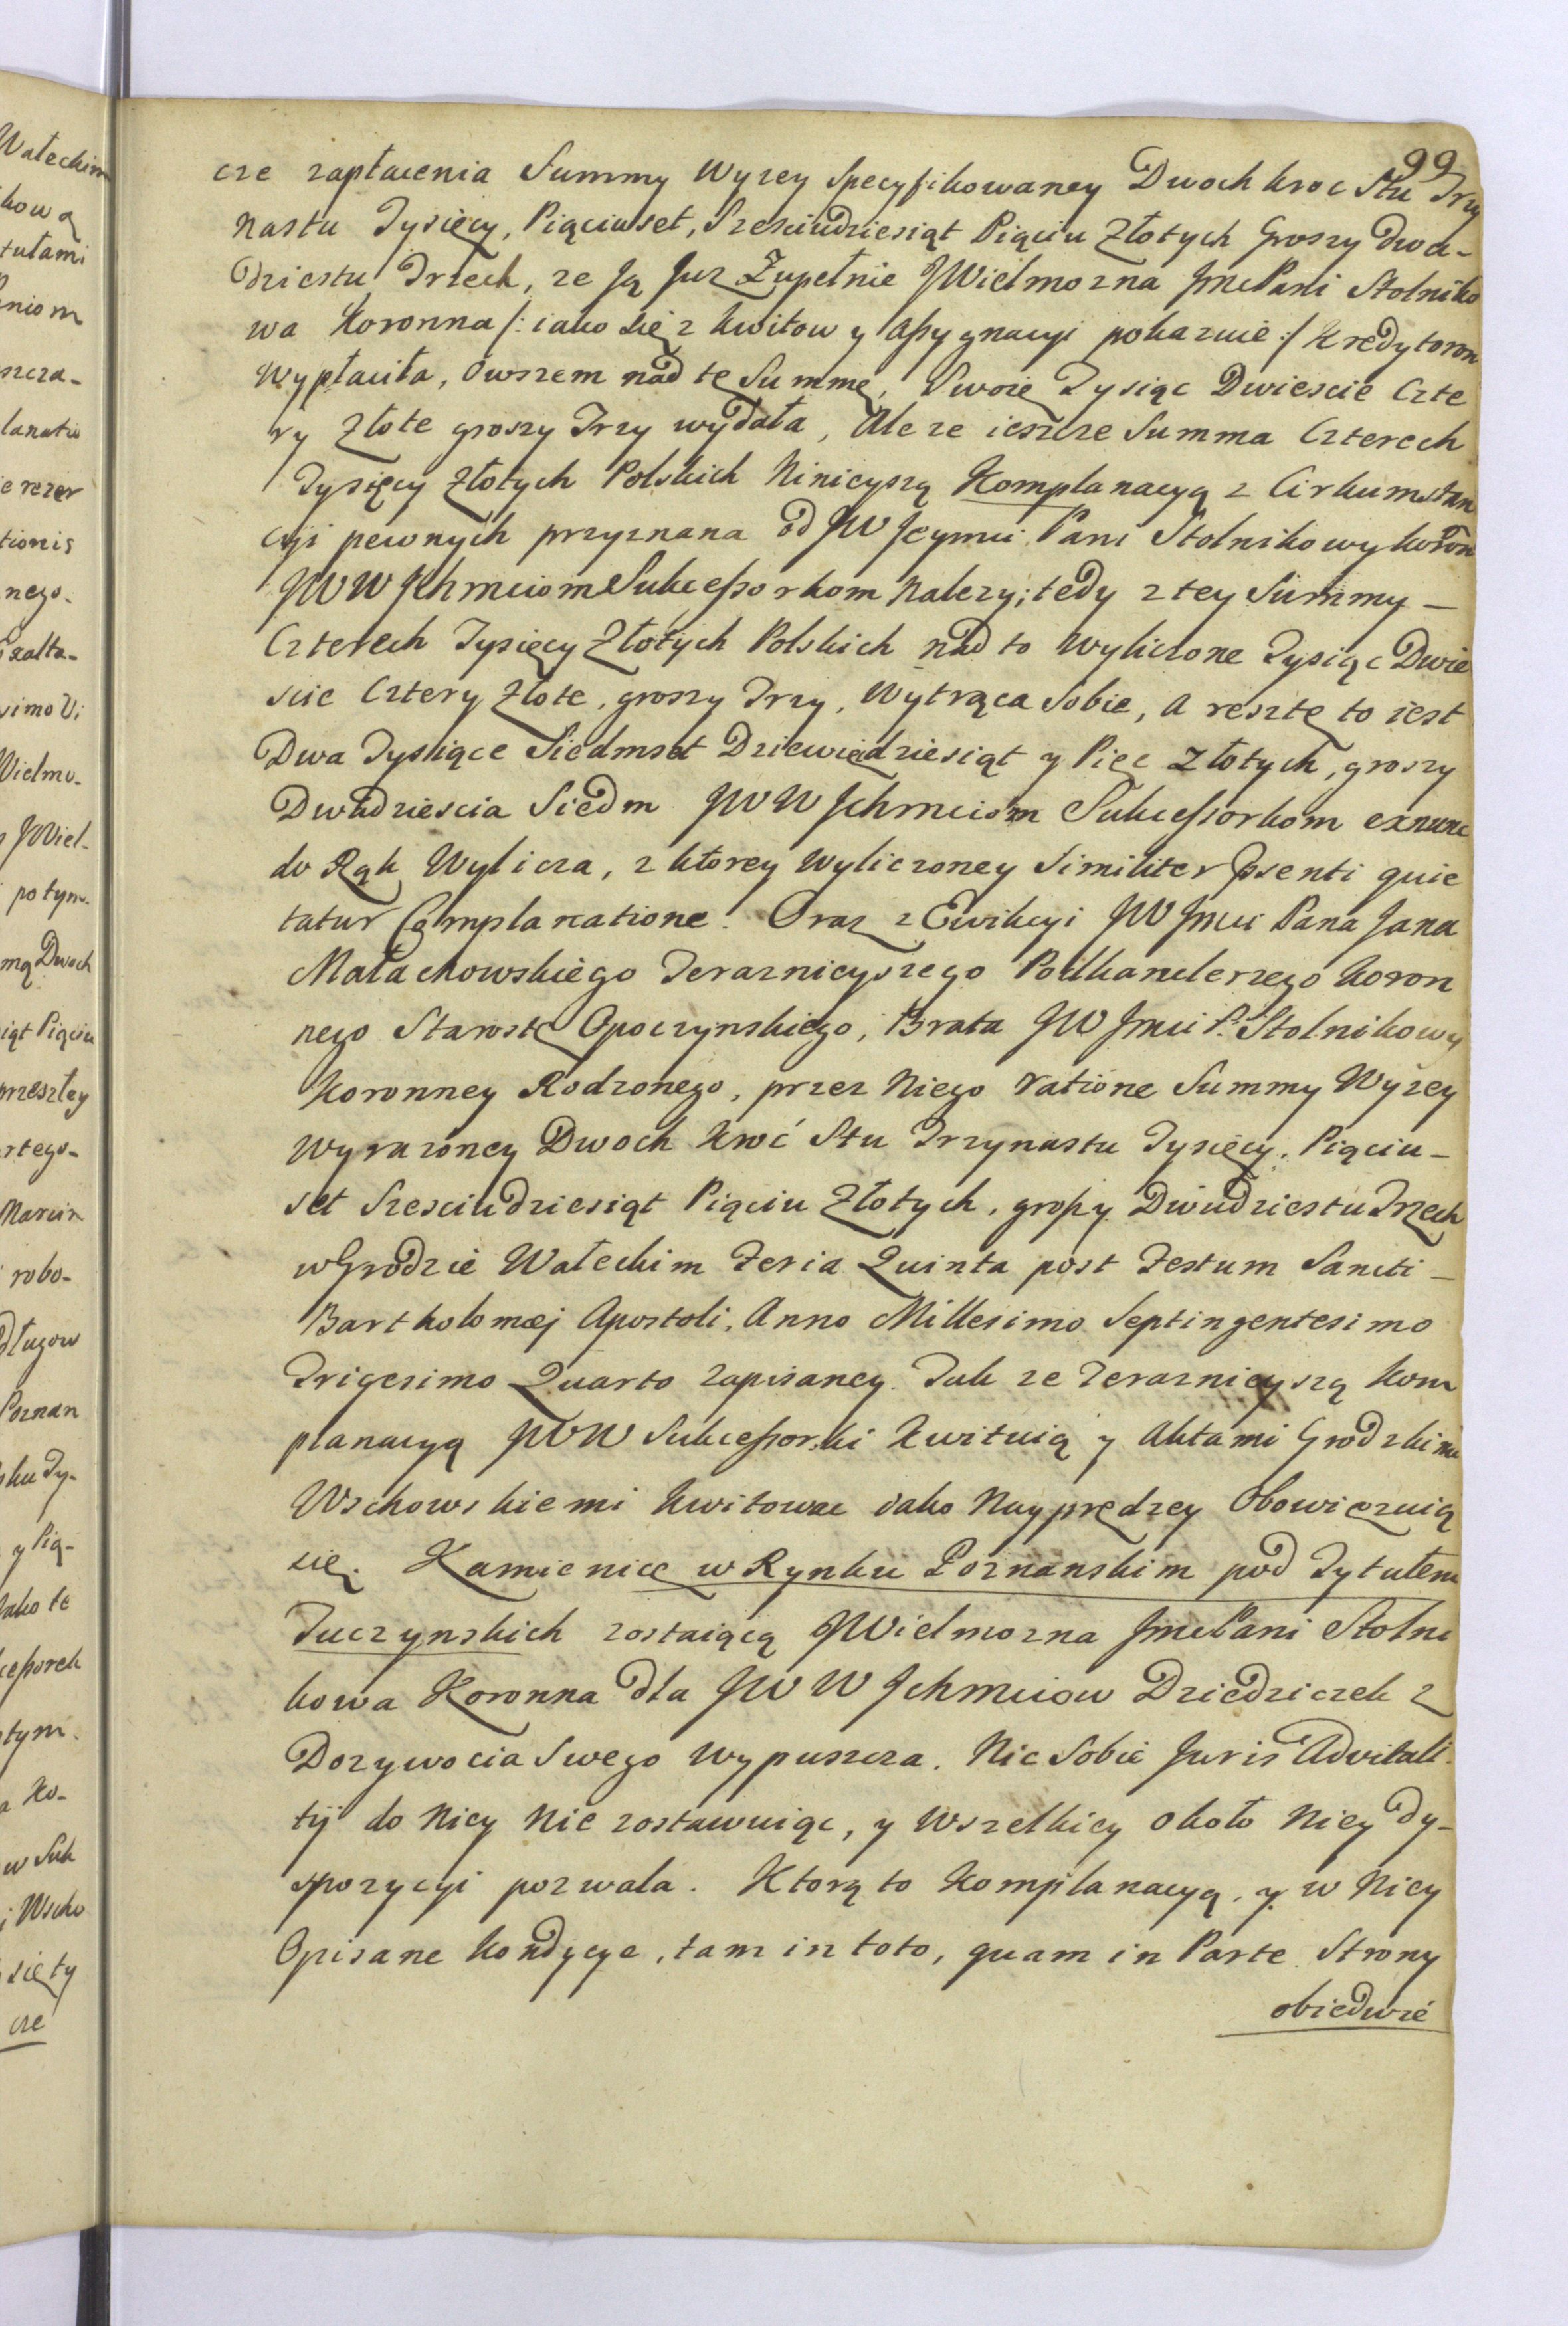 99
cze zapłacenia Summy Wyzey Specyfikowaney Dwoch kroc Stu Trzy
nastu Tysięcy, Piąciuset, Szesciudziesiąt Piąciu Złotych Groszy dwa-
dziestu Trzech, ze Ją Juz Zupełnie JWielmozna JmcPani Stolniko
wa Koronna /: iako się z kwitow y Assygnacyi pokazuie :/ Kredytorom
Wypłaciła, Owszem nad tę Summę, Swoie Tysiąc Dwiescie Czte
ry Złote groszy Trzy wydała, Ale ze ieszcze Summa Czterech
Tysięcy Złotych Polskich Ninieyszą Komplanacyą z Cirkumstan
cyi pewnych przyznana od JW Jeymci Pani Stolnikowy koron
JWW Jchmciom Sukcessorkom Nalezy; tedy z tey Summy —
Czterech Tysięcy Złotych Polskich nad to Wyliczone Tysiąc Dwie
scie Cztery Złote, groszy Trzy, Wytrąca Sobie, a resztę to iest
Dwa Tysiące Siedmset Dziewiędziesiąt y Pięc Złotych, groszy
Dwadziescia Siedm JWW Jchmciom Sukcessorkom exnunc
do Rąk Wylicza, z ktorey wyliczoney Similiter Psenti quie
tatur Complanatione. Oraz z Ewikcyi JW Jmci Pana Jana
Małachowskiego Teraznieyszego Podkanclerzego Koron
nego Starostę Opoczynskiego, Brata JW Jmci P. Stolnikowy
Koronney Rodzonego, przez Niego ratione Summy Wyzey
wyrazoney Dwoch kroć Stu Trzynastu Tysięcy, Piąciu-
set Szesciudziesiąt Piąciu Złotych, groszy Dwudziestu Trzech
w Grodzie Wałeckim Feria Quinta post Festum Sancti —
Bartholomæj Apostoli, Anno Millesimo Septingentesimo
Trigesimo Quarto zapisaney. Tak ze Teraznieyszą Kom
planacyą JWW Sukcessorki Kwituią y Aktami Grodzkimi
Wschowskiemi kwitowac iako Nayprędzey Obowięzuią
się. Kamienicę w Rynku Poznanskim pod Tytułem
Tuczynskich zostaiącą JWielmozna JmcPani Stolni
kowa Koronna dla JWW Jchmciow Dziedziczek z
Dozywocia Swego Wypuszcza. Nic Sobie Juris Advitali
tij do Niey Nie zostawuiąc, y Wszelkiey około Niey dy-
spozycyi pozwala. Ktorą to Komplanacyą, y w Niey
Opisane kondycye, tam in toto, quam in Parte Strony
obiedwie